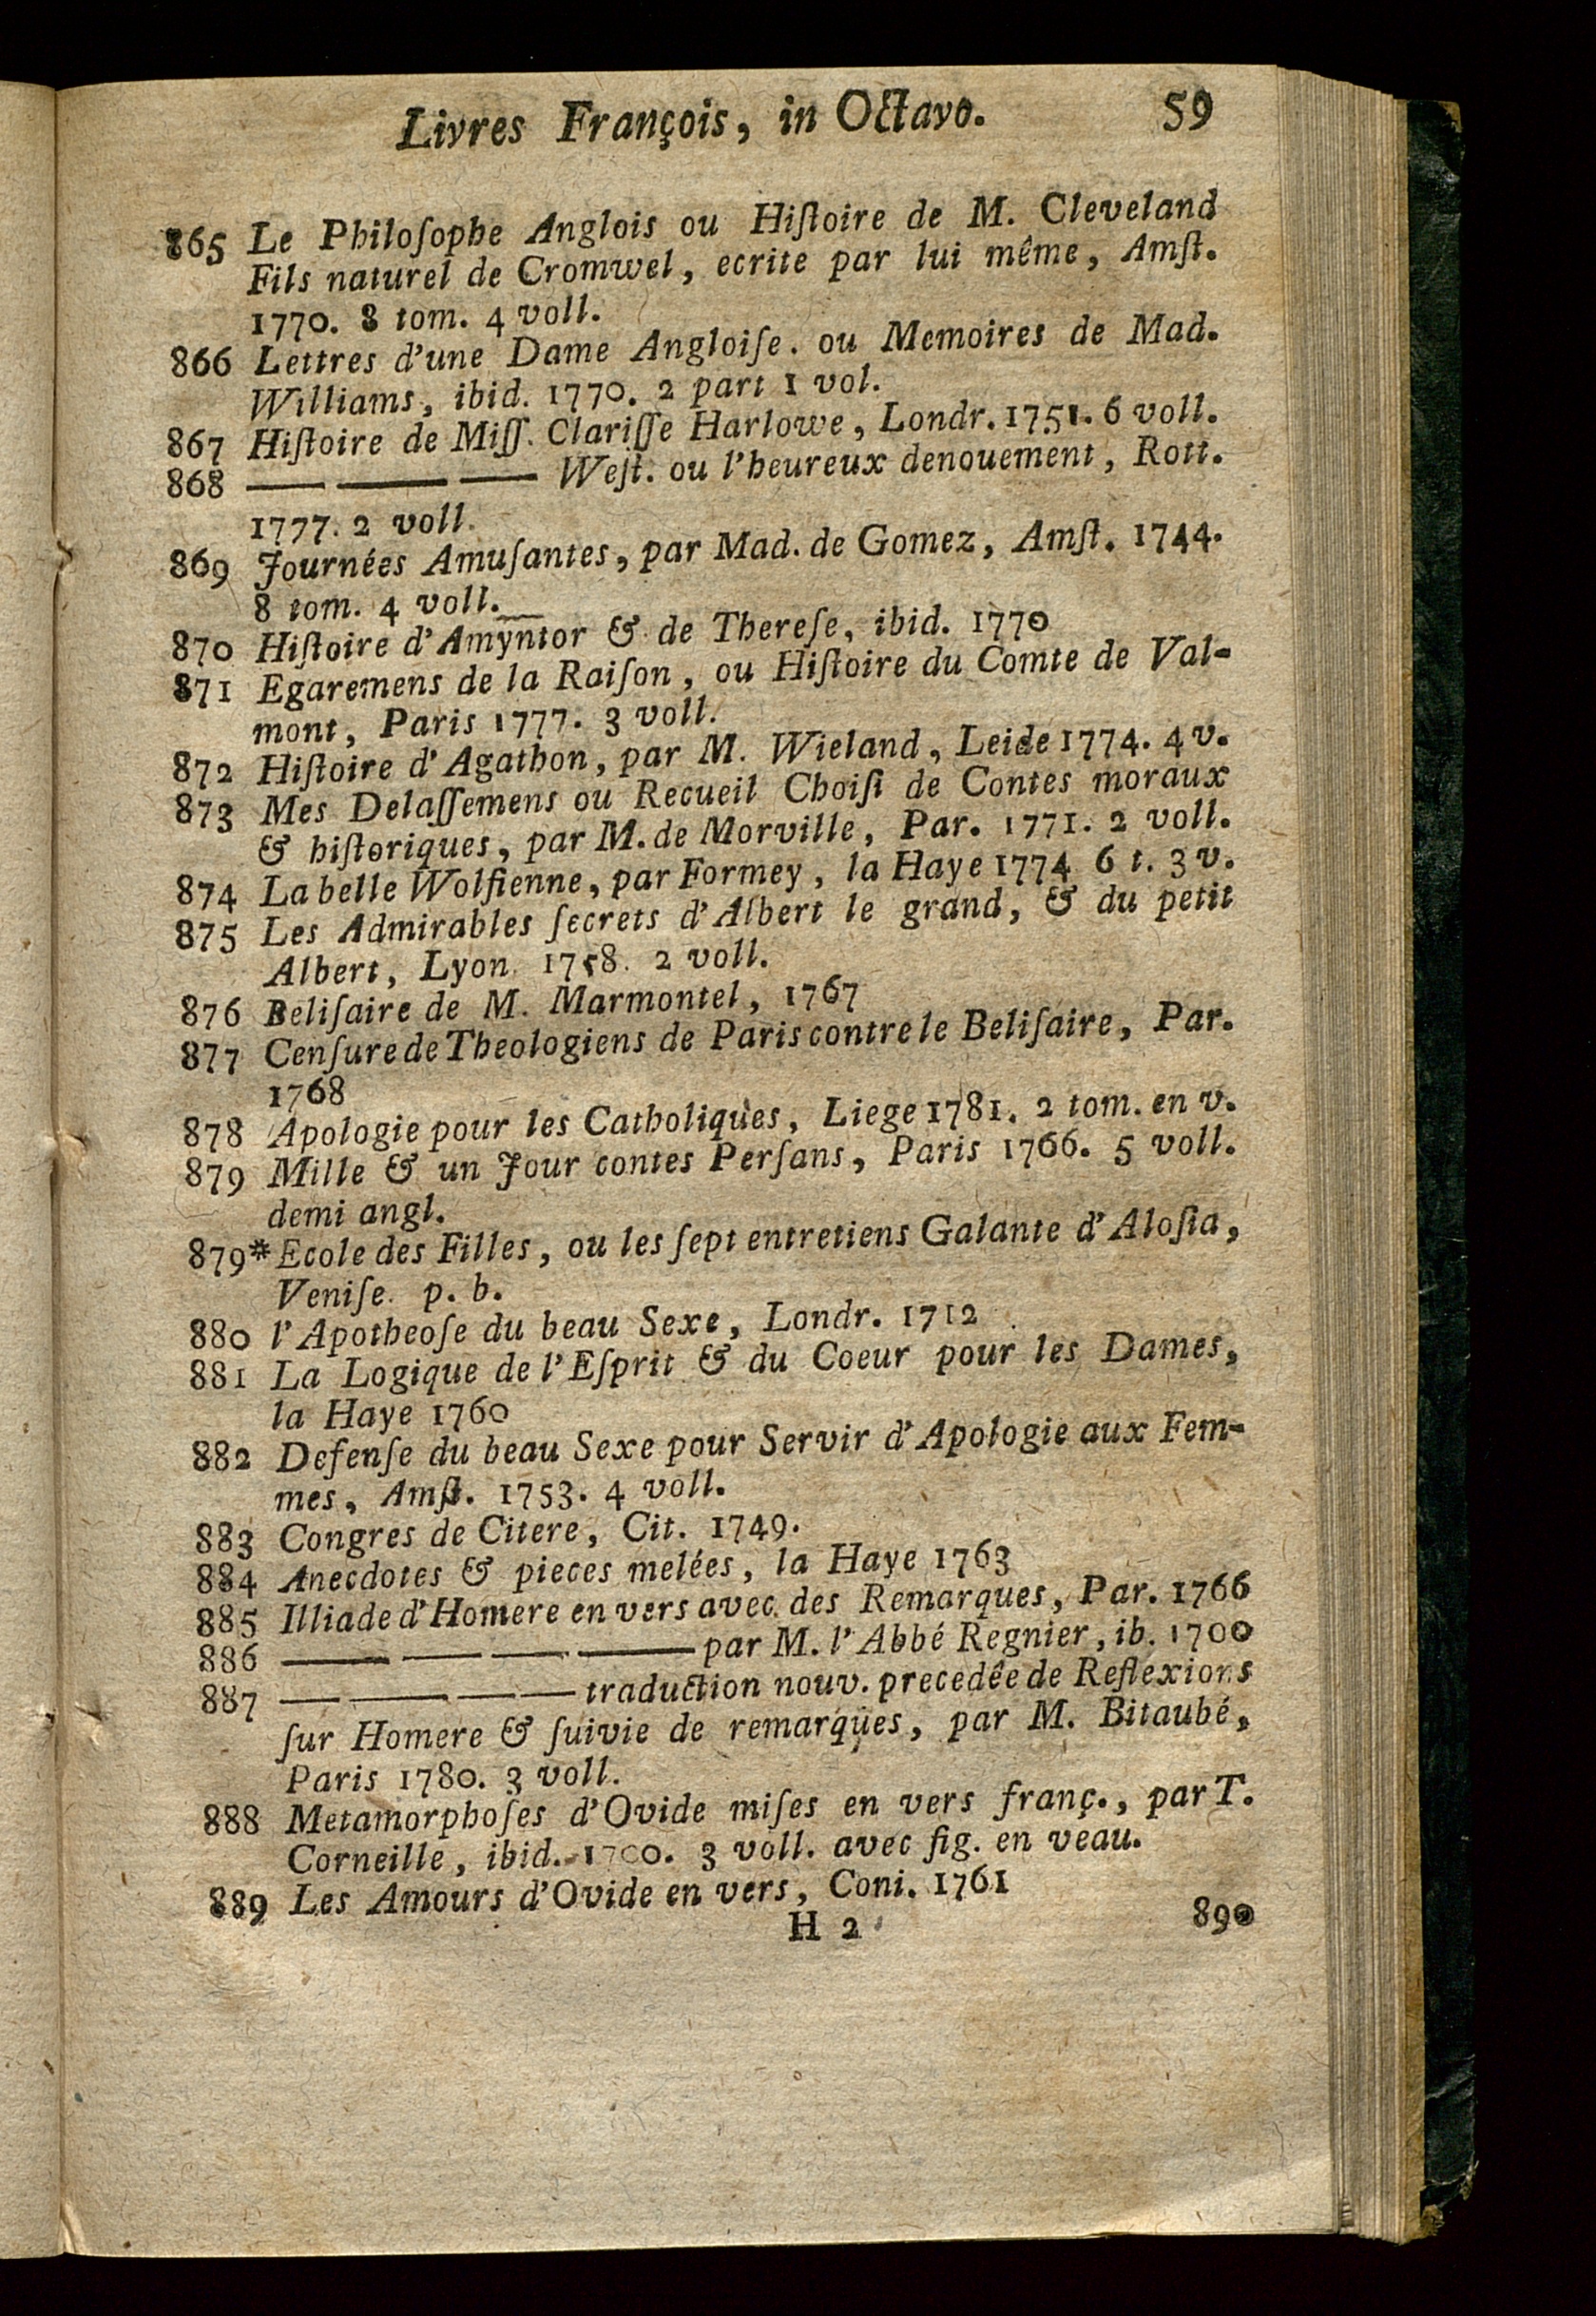 Livres François, in Octavo. 59
865 Le Philoſophe Anglois ou Hiſtoire de M. Cleveland
Fils naturel de Cromwel, ecrite par lui même, Amſt.
1770. 8 tom. 4 voll.
866 Lettres d'une Dame Angloiſe. ou Memoires de Mad.
Williams, ibid. 1770. 2 part 1 vol.
867 Hiſtoire de Miſſ. Clariſſe Harlowe, Londr. 1751. 6 voll.
868 — — — Weſt. ou l'heureux denouement, Rott.
1777. 2 voll.
869 Journées Amuſantes, par Mad. de Gomez, Amſt. 1744.
8 tom. 4 voll.
870 Hiſtoire d'Amyntor & de Thereſe, ibid. 1770
871 Egaremens de la Raiſon, ou Hiſtoire du Comte de Val-
mont, Paris 1777. 3 voll.
872 Hiſtoire d'Agathon, par M. Wieland, Leide 1774. 4 v.
873 Mes Delaſſemens ou Recueil Choiſi de Contes moraux
& hiſtoriques, par M. de Morville, Par. 1771. 2 voll.
874 La belle Wolfienne, par Formey, la Haye 1774 6 t. 3 v.
875 Les Admirables ſecrets d'Albert le grand, & du petit
Albert, Lyon 1758. 2 voll.
876 Beliſaire de M. Marmontel, 1767
877 Cenſure de Theologiens de Paris contre le Beliſaire, Par.
1768
878 Apologie pour les Catholiques, Liege 1781. 2 tom. en v.
879 Mille & un Jour contes Perſans, Paris 1766. 5 voll.
demi angl.
879* Ecole des Filles, ou les ſept entretiens Galante d'Aloſia,
Veniſe. p. b.
880 l'Apotheoſe du beau Sexe, Londr. 1712
881 La Logique de l'Eſprit & du Coeur pour les Dames,
la Haye 1760
882 Defenſe du beau Sexe pour Servir d'Apologie aux Fem-
mes, Amſt. 1753. 4 voll.
883 Congres de Citere, Cit. 1749.
884 Anecdotes & pieces melées, la Haye 1763
885 Illiade d'Homere en vers avec des Remarques, Par. 1766
886 — — — — par M. l'Abbé Regnier, ib. 1700
887 — — — — traduction nouv. precedêe de Reflexions
ſur Homere & ſuivie de remarques, par M. Bitaubé,
Paris 1780. 3 voll.
888 Metamorphoſes d'Ovide miſes en vers franç., par T.
Corneille, ibid. 1700. 3 voll. avec fig. en veau.
889 Les Amours d'Ovide en vers, Coni. 1761
H 2 890